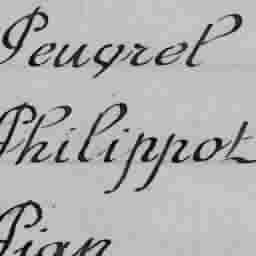 Peugrel
Philippot
Pian